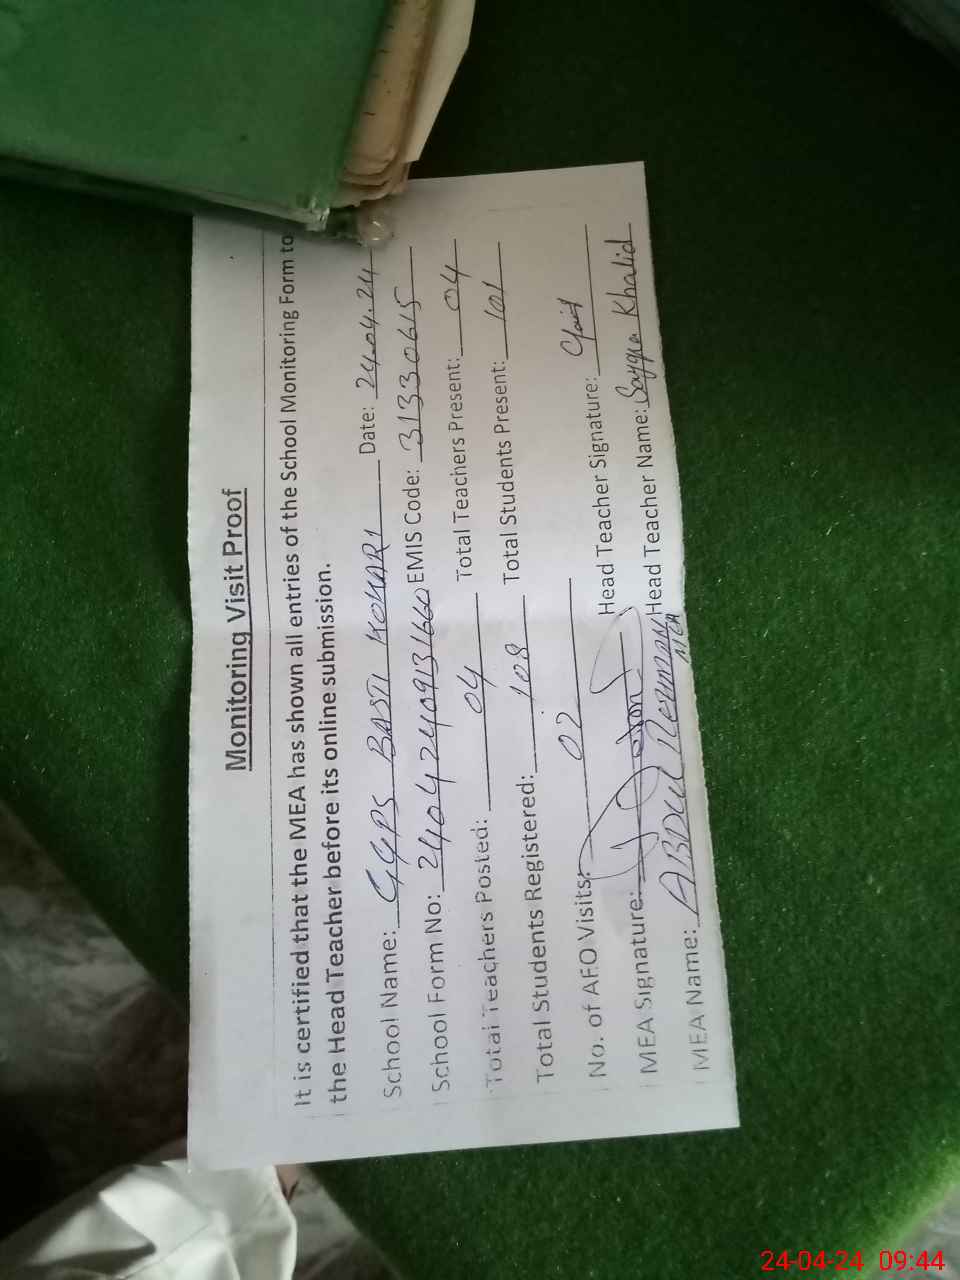 Monitoring Visit Proof
It is certified that the MEA has shown all entries of the School Monitoring Form to
the Head Teacher before its online submission.
School Name: GGPS BASTI KOHARI Date: 24.04.24
School Form No: 24042409131660 EMIS Code: 31330615
Total Teachers Posted: 04 Total Teachers Present: 04
Total Students Registered: 108 Total Students Present: 101
No. of AEO Visits: 02
MEA Signature: Head Teacher Signature:
MEA Name: ABDUL REHMAN MEA Head Teacher Name: Khalid
24-04-24 09:44